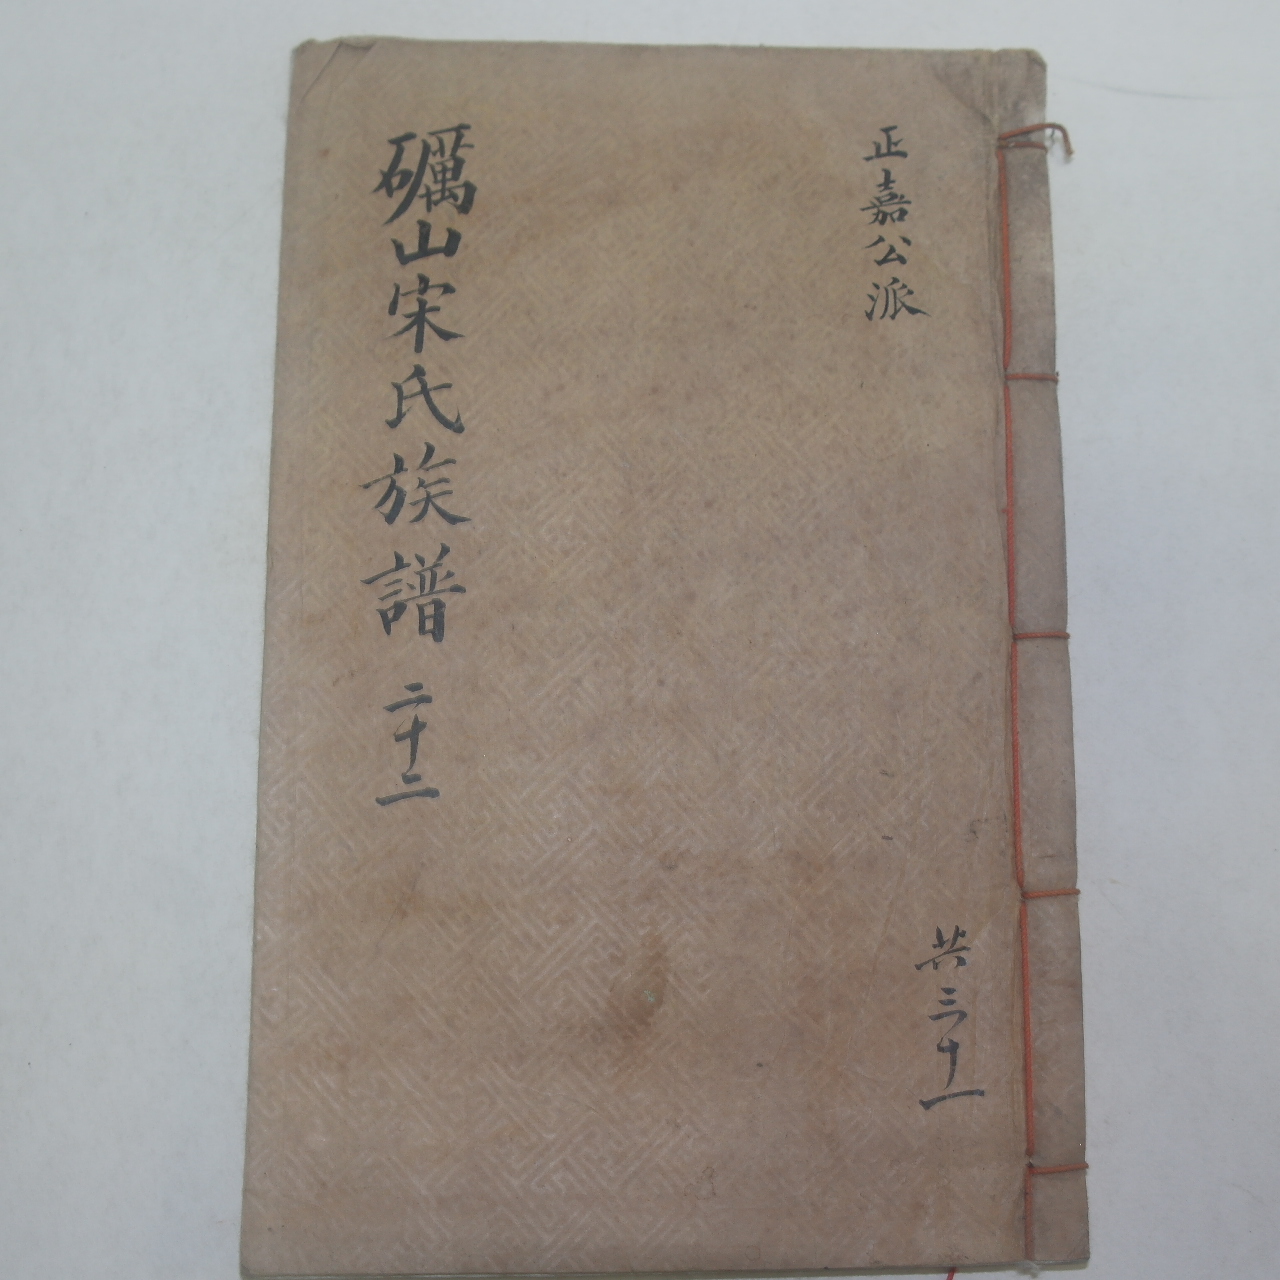 正嘉公派
共三十一
礪山宋氏族譜 二十二